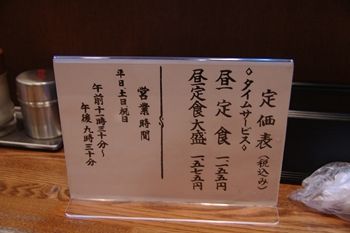 定価表(税込み)
◇タイムサービス◇
昼一定食 一二五五円
昼定食大盛 一五七五円
営業時間
平日土日祝日
午前十一時三十分～
午後九時三十分